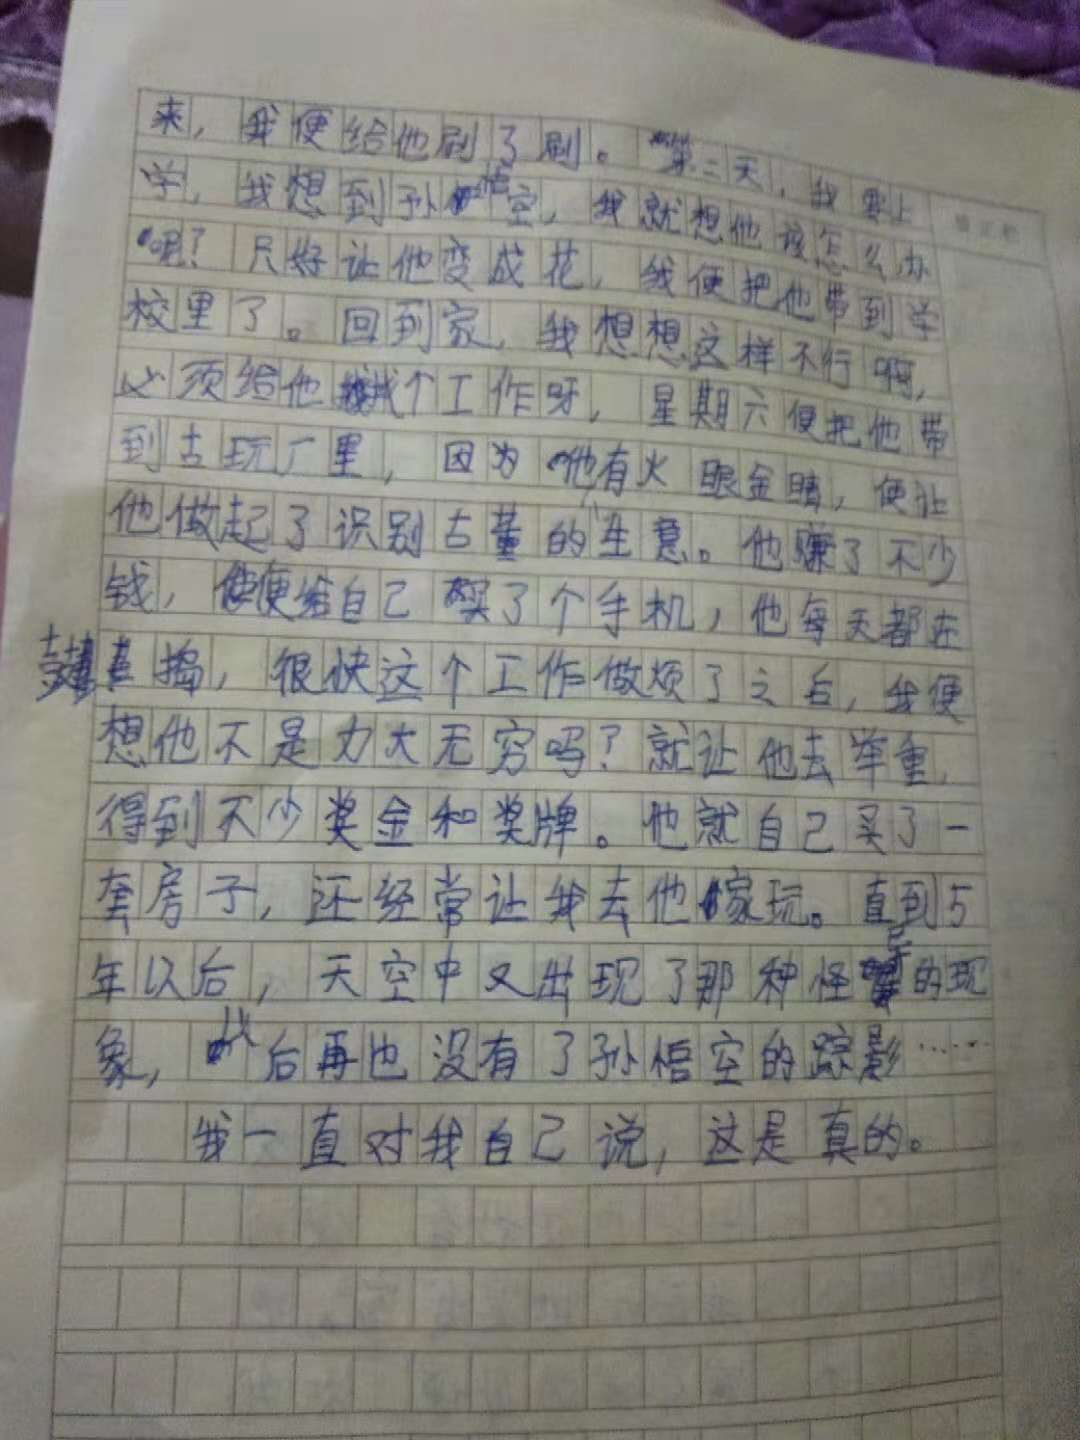 来，我便给他刷了刷。第二天，我要上
学，我想到孙悟空，我就想他该怎么办
呢？只好让他变成花，我便把他带到学
校里了。回到家，我想想这样不行啊，
必须给他找个工作呀，星期六便把他带
到古玩厂里，因为他有火眼金睛，便让
他做起了识别古董的生意。他赚了不少
钱，便给自己买了个手机，他每天都在
捣，很快这个工作做烦了之后，我便
想他不是力大无穷吗？就让他去举重，
得到不少奖金和奖牌。他就自己买了一
套房子，还经常让我去他家玩。直到5
年以后，天空中又出现了那种怪异的现
象，从后再也没有了孙悟空的踪影……
我一直对我自己说，这是真的。